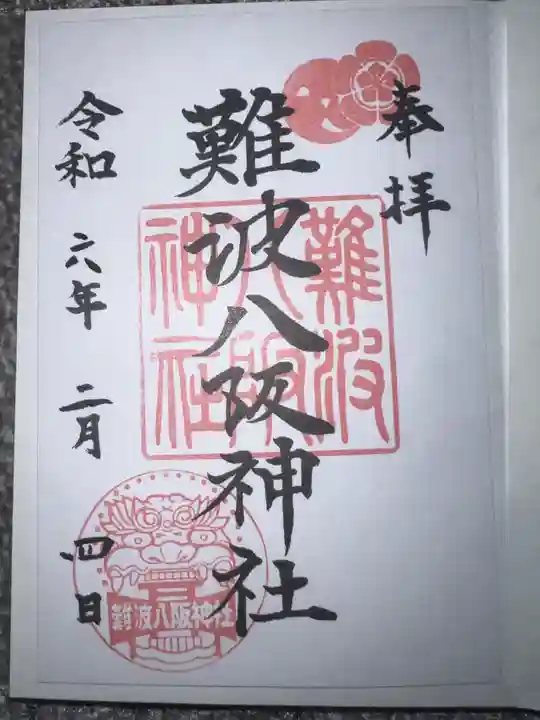 奉拝
難波八阪神社
難波八阪神社
令和 六年 二月 四日
難波八阪神社